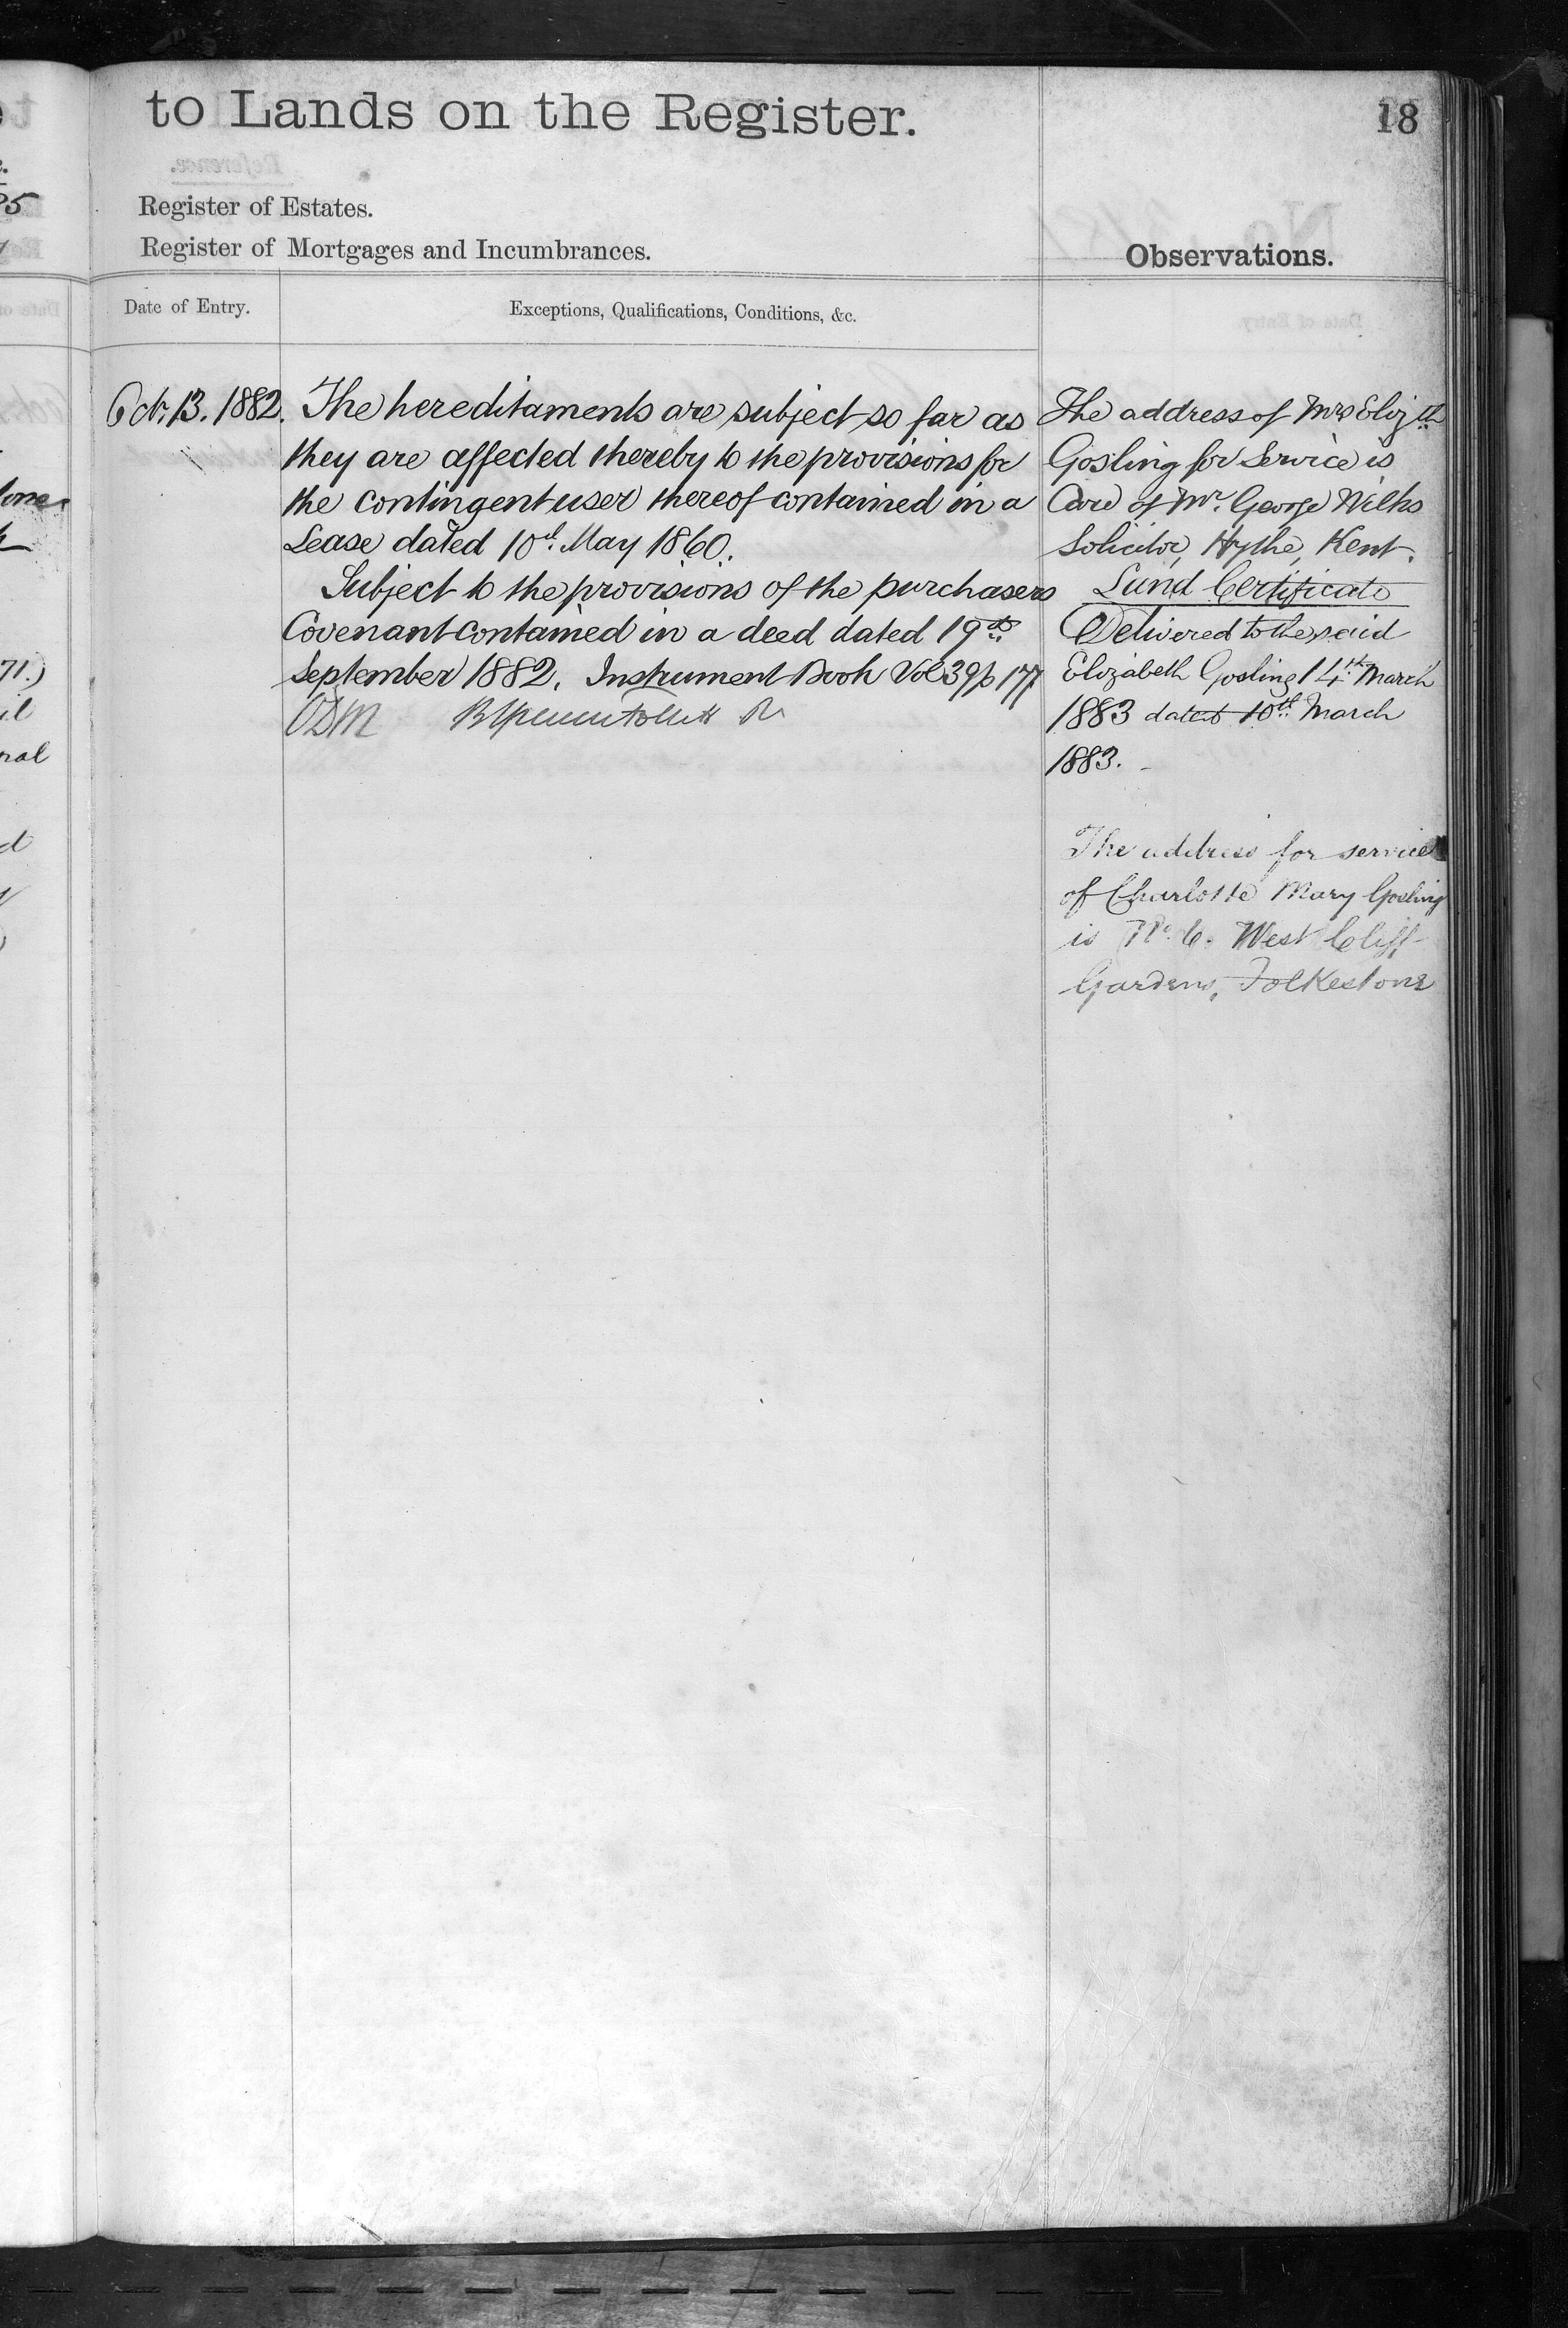 to Lands on the Register.
18
Register of Estates.
Register of Mortgages and Incumbrances.
Observations.
Date of Entry.
Exceptions, Qualifications, Conditions, &c.
Oct. 13. 1882.
The hereditaments are subject so far as
they are affected thereby to the provisions for
the contingent user thereof contained in a
Lease dated 10th. May 1860.
Subject to the provisions of the purchasers
Covenant contained in a deed dated 19th.
September 1882. Instrument Book Vol 39 p 177
The address of Mrs Elizth
Gosling for Service is
Care of Mr. George Wilks
Solicitor, Hythe, Kent.
Land Certificate
Delivered to the said
Elizabeth Gosling 14th. March
1883 dated 10th. March
1883.
The address for service
of Charlotte Mary Gosling
is No. 6. West Cliff
Gardens, Folkestone